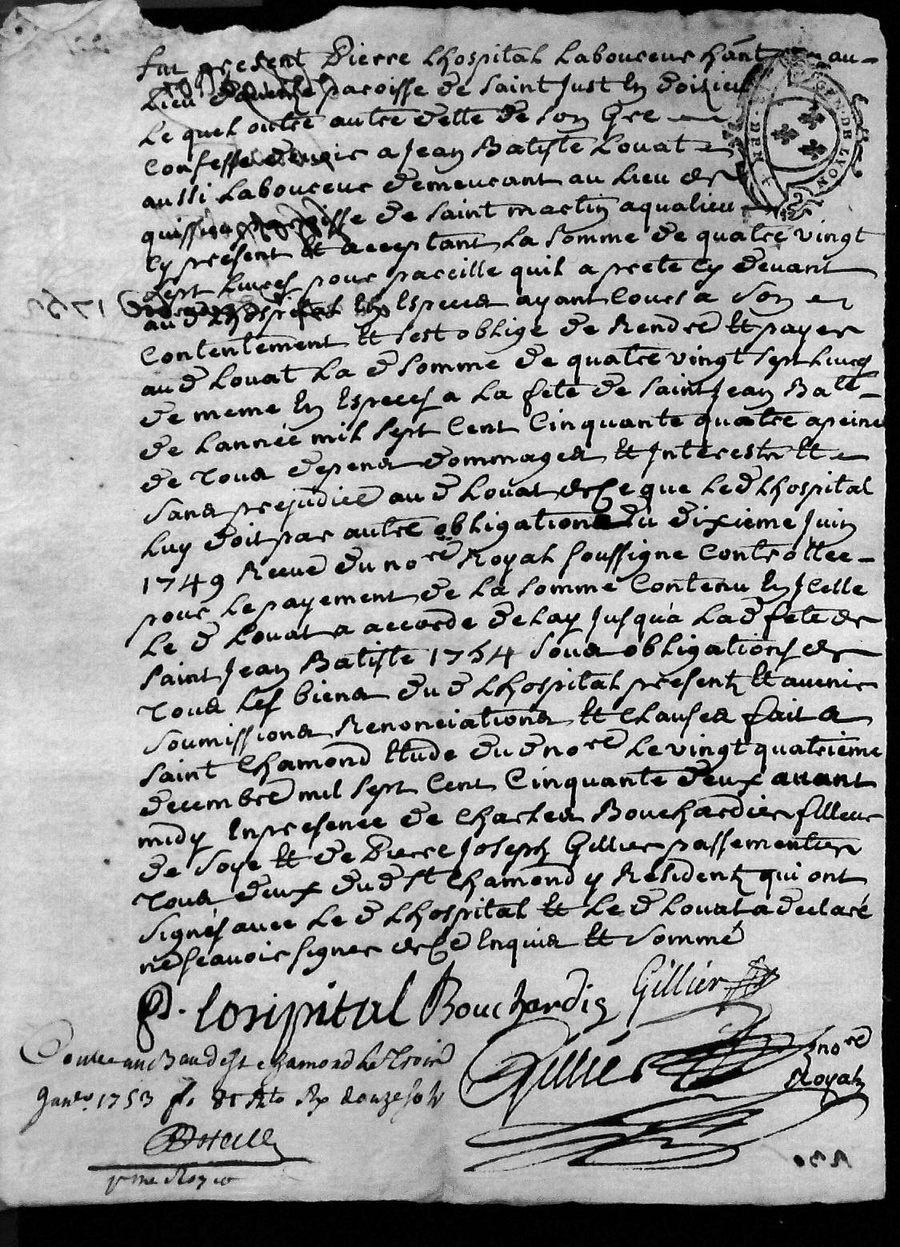 fut present Pierre Lhospital Laboureur hant au-
Lieu paroisse de Saint Just En doizieu
Le quel outre autre dette de Son Gre
Confesse devoir a Jean Batiste Louat
aussi Laboureur demeurant au Lieu de
de Saint martin aqualieu
Cy present et acceptant La Somme de quatre vingt
Sept Livres pour pareille quil a prete Cy devant
aud Lhospital En Especes ayant Cours a Son
Contentement et Sest oblige de Rendre et payer
aud Louat La d Somme de quatre vingt Sept Livres
de meme En Especes a La fete de Saint Jean Bate-
de Lannée mil Sept Cent Cinquante quatre a peine
de Tous depens dommages et Interests et
Sans prejudice aud Louat de Ce que Led Lhospital
Luy doit par autre obligation du dixieme Juin
1749 Recue du nore Royal Soussigne Controllee-
pour Le payement de La Somme Contenu En Icelle
Le d Louat a accorde delay Jusqua Lad fete de
Saint Jean Batiste 1754 Sous obligations de
Tous Les biens du d Lhospital presents et avenir
Soumissions Renonciations et Clauses fait a
Saint Chamond Etude du d nore Le vingt quatrieme
decembre mil Sept Cent Cinquante deux avant
midy In presence de Charles Bouchardier filleur
de Soye et de Pierre Joseph Gillier passementier
Tous deux du d St Chamond y Residents qui ont
Signés avec Le d Lhospital et Le d Louat a declaré
ne Scavoir Signer de Ce Enquis et Sommé
P. Losipital Bouchardie Gillier
Gillier nore
Royal
Controlle au Bau de St Chamond Le Trois
Janv. 1753 fo 81 Ro Rx douze Sols